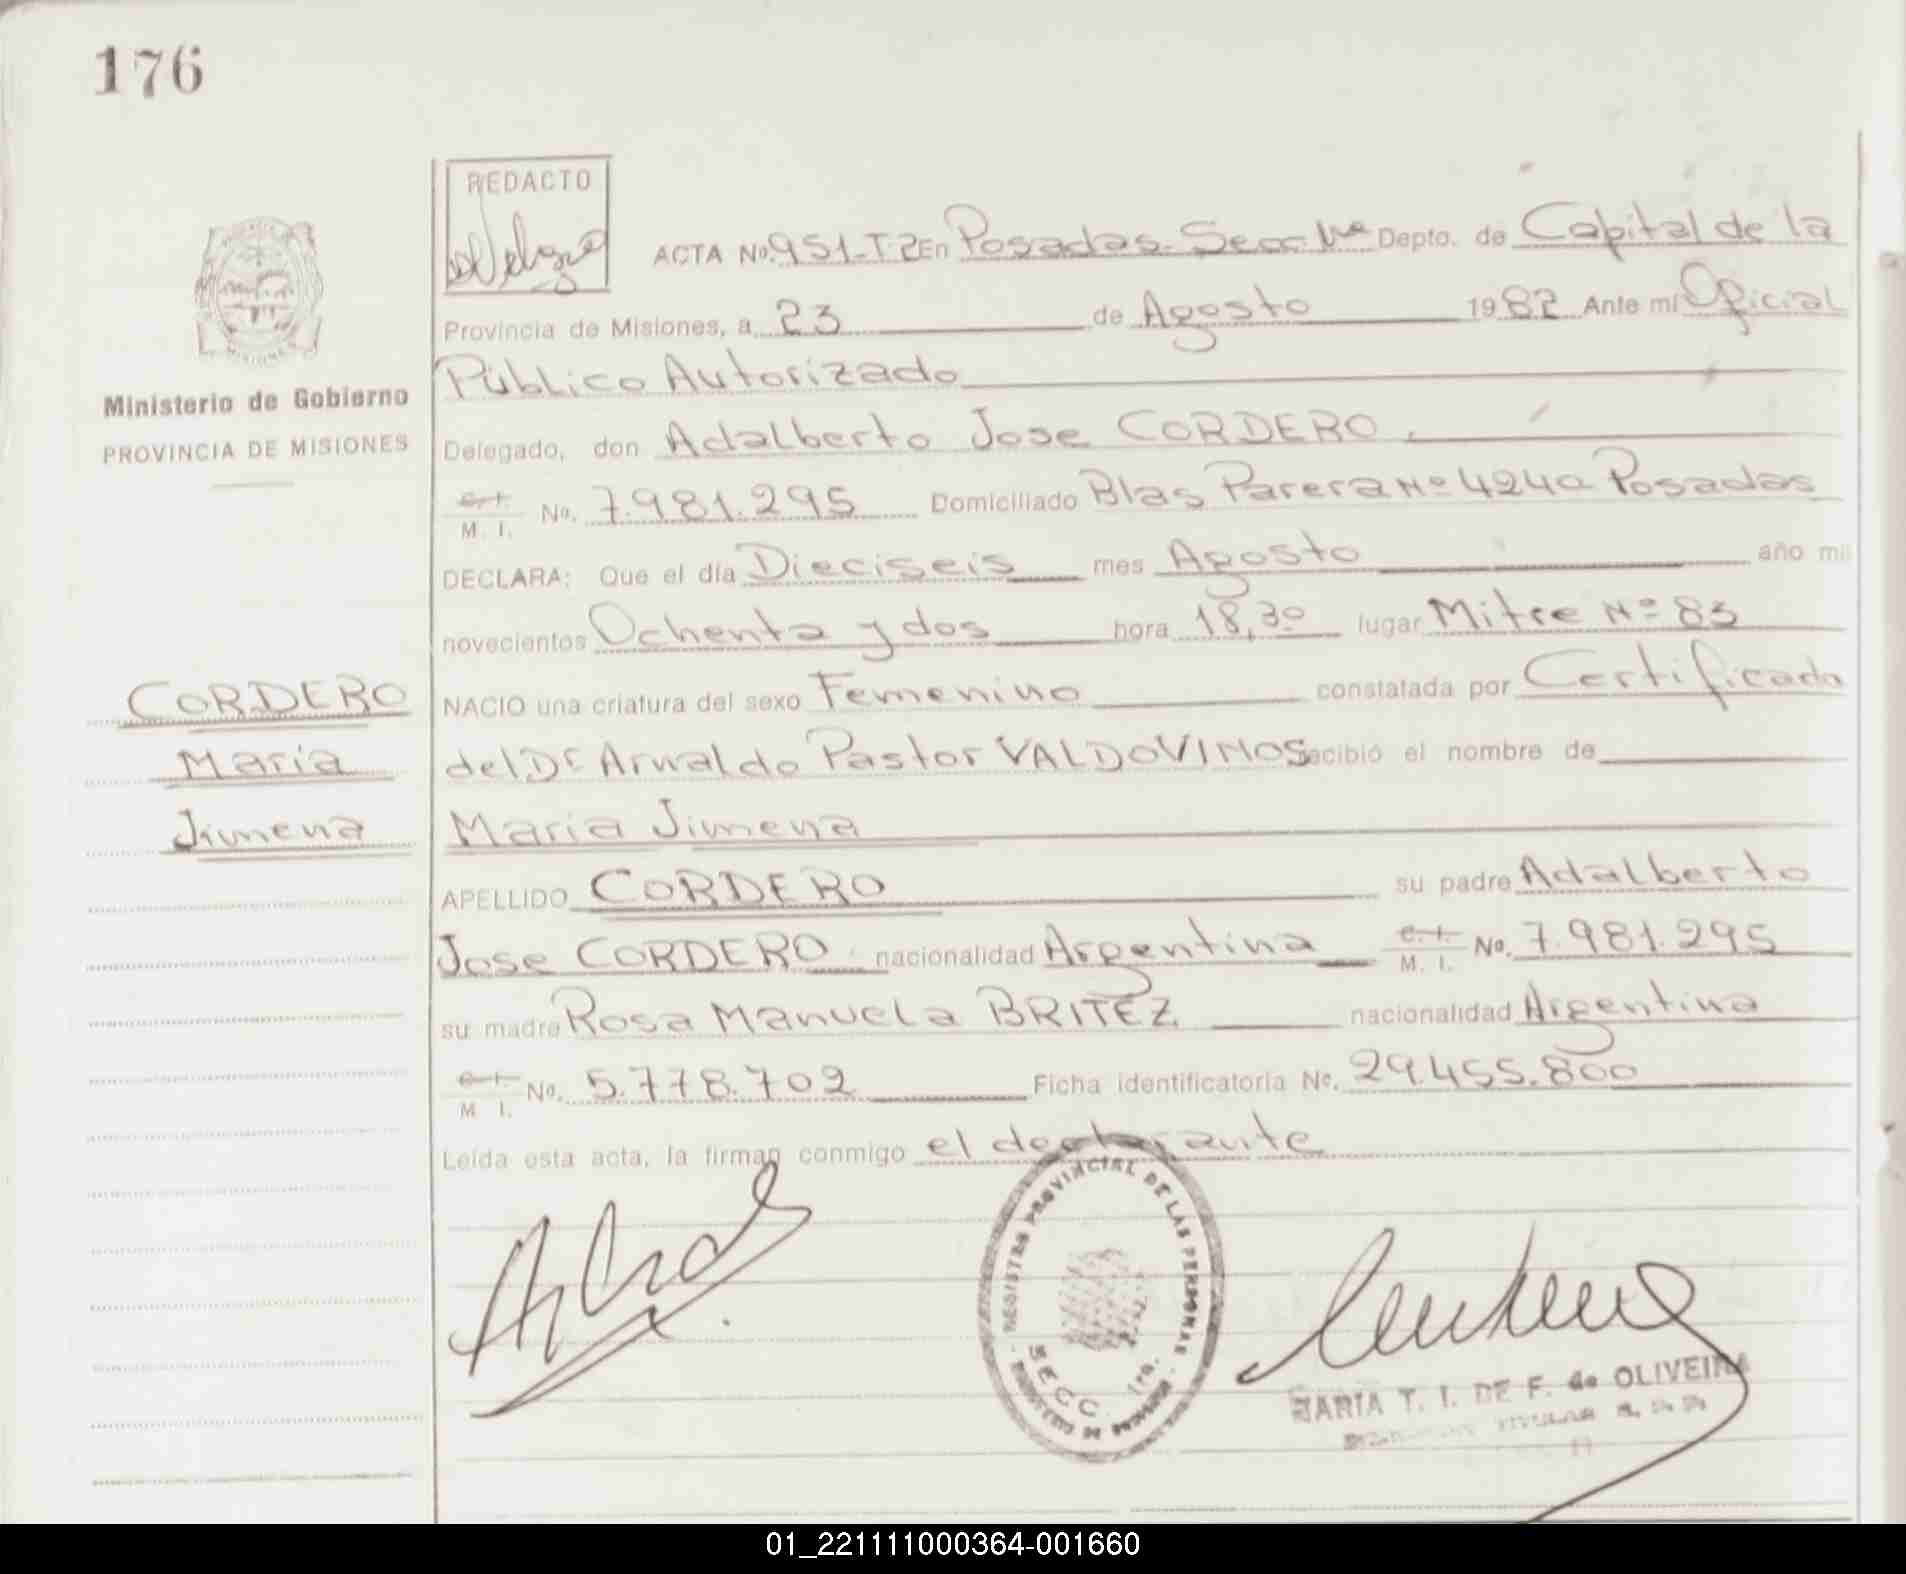 176
REDACTO
ACTA No. 951-T-2 En Posadas Secc. 1ra Depto. de Capital de la
Provincia de Misiones, a 23 de Agosto 1982 Ante mi Oficial
Público Autorizado
Ministerio de Gobierno
PROVINCIA DE MISIONES
Delegado, don Adalberto Jose CORDERO
M. I. No. 7.981.295 Domiciliado Blas Parera Nº 4240 Posadas
DECLARA: Que el día Dieciseis mes Agosto año mil
novecientos Ochenta y dos hora 18,30 lugar Mitre Nº 83
CORDERO
Maria
Jimena
NACIO una criatura del sexo Femenino constatada por Certificado
del Dr Arnaldo Pastor VALDOVINOS recibió el nombre de
Maria Jimena
APELLIDO CORDERO su padre Adalberto
Jose CORDERO nacionalidad Argentina C. I. M. I. No. 7.981.295
su madre Rosa Manuela BRITEZ nacionalidad Argentina
M. I. No. 5.778.702 Ficha identificatoria No. 29.455.800
Leída esta acta, la firman conmigo el declarante
REGISTRO PROVINCIAL DE LAS PERSONAS
SECC. 1ra.
MARIA T. I. DE F. de OLIVEIRA
01_221111000364-001660